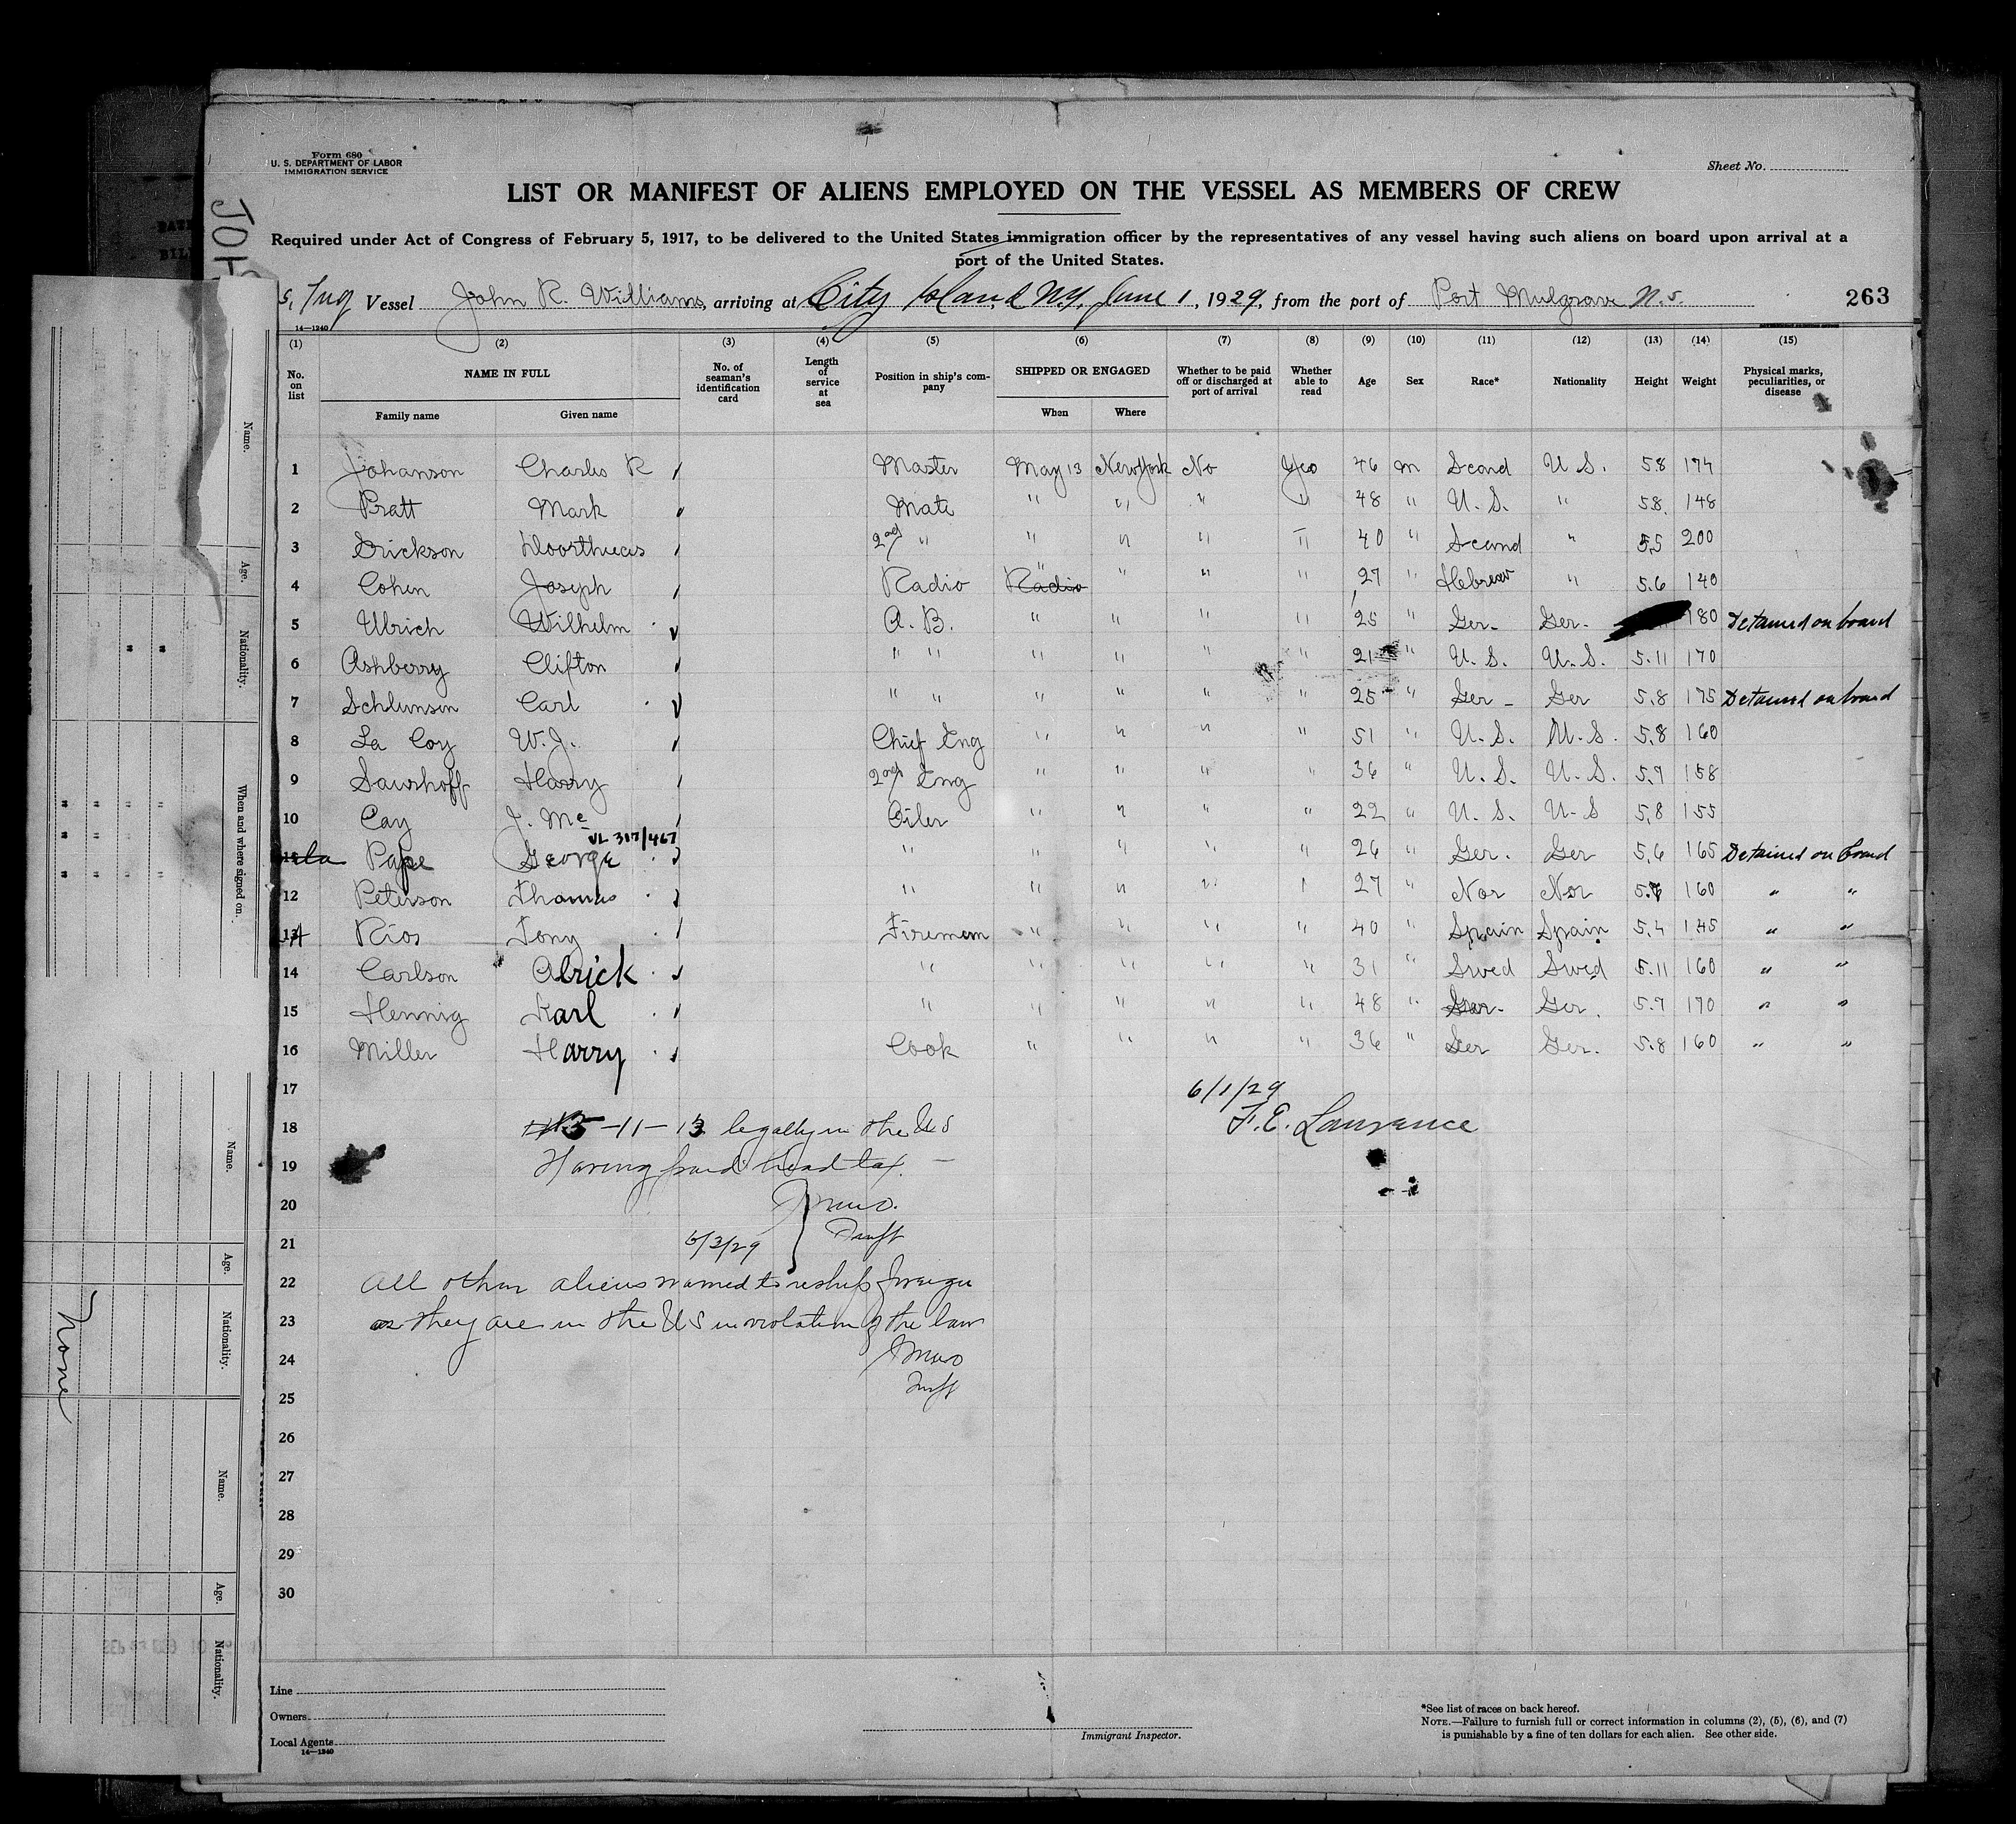 Form 680
U. S. DEPARTMENT OF LABOR
IMMIGRATION SERVICE
Sheet No.
LIST OR MANIFEST OF ALIENS EMPLOYED ON THE VESSEL AS MEMBERS OF CREW
Required under Act of Congress of February 5, 1917, to be delivered to the United States immigration officer by the representatives of any vessel having such aliens on board upon arrival at a
port of the United States.
S. Tug Vessel John R. Williams, arriving at City Island NY, June 1, 1929, from the port of Port Mulgrave N.S. 263
14—1240
(1) (2) (3) (4) (5) (6) (7) (8) (9) (10) (11) (12) (13) (14) (15)
No. on list NAME IN FULL No. of seaman's identification card Length of service at sea Position in ship's company SHIPPED OR ENGAGED Whether to be paid off or discharged at port of arrival Whether able to read Age Sex Race* Nationality Height Weight Physical marks, peculiarities, or disease
Family name Given name When Where
1 Johanson Charles R Master May 13 New York No Yes 46 m Scand U S. 5.8 174
2 Pratt Mark Mate " " " " 48 " U. S. " 5.8. 148
3 Erickson 2nd " " " " " 40 " Scand " 5.5 200
4 Cohen Joseph Radio Radio " " " " 27 " Hebrew " 5.6 140
5 Ulrich Wilhelm A. B. " " " " 25 " Ger- Ger- 180 Detained on board
6 Ashberry Clifton " " " " " " 21 " U. S. U. S. 5.11 170
7 Schlunsen Carl " " " " " " 25 " Ger - Ger 5.8 175 Detained on board
8 La Coy W. J. Chief Eng " " " " 51 " U. S. U. S. 5.8 160
9 Harry 2nd Eng " " " " 36 " U. S. U. S. 5.7 158
10 Cay J. Mc Oiler " " " " 22 " U. S. U-S 5.8 155
VL 317/467
Pape George " " " " " 26 " Ger. Ger 5.6 165 Detained on board
12 Peterson Thomas " " " " " 27 " Nor Nor 160 " "
13 Rios Tony Firemen " " " " 40 " Spain Spain 5.4 145 " "
14 Carlson Alrick " " " " " 31 " Swed Swed 5.11 160 " "
15 Hennig Karl " " " " " 48 " Ger- Ger. 5.7 170 " "
16 Miller Harry Cook " " " " 36 " Ger Ger. 5.8 160 " "
17 6/1/29
18 -11-13 legally in the U S F. E. Lawrance
19 Having paid head tax.
20
21 6/3/29
22 All other aliens warned to reship foreign
23 as they are in the U S in violation of the law
24
25
26
27
28
29
30
Line
Owners
Local Agents
14—1240
Immigrant Inspector.
*See list of races on back hereof.
NOTE.—Failure to furnish full or correct information in columns (2), (5), (6), and (7)
is punishable by a fine of ten dollars for each alien. See other side.
Name.
Age.
Nationality.
When and where signed on.
Name.
Age.
Nationality.
None
Name.
Age.
Nationality.